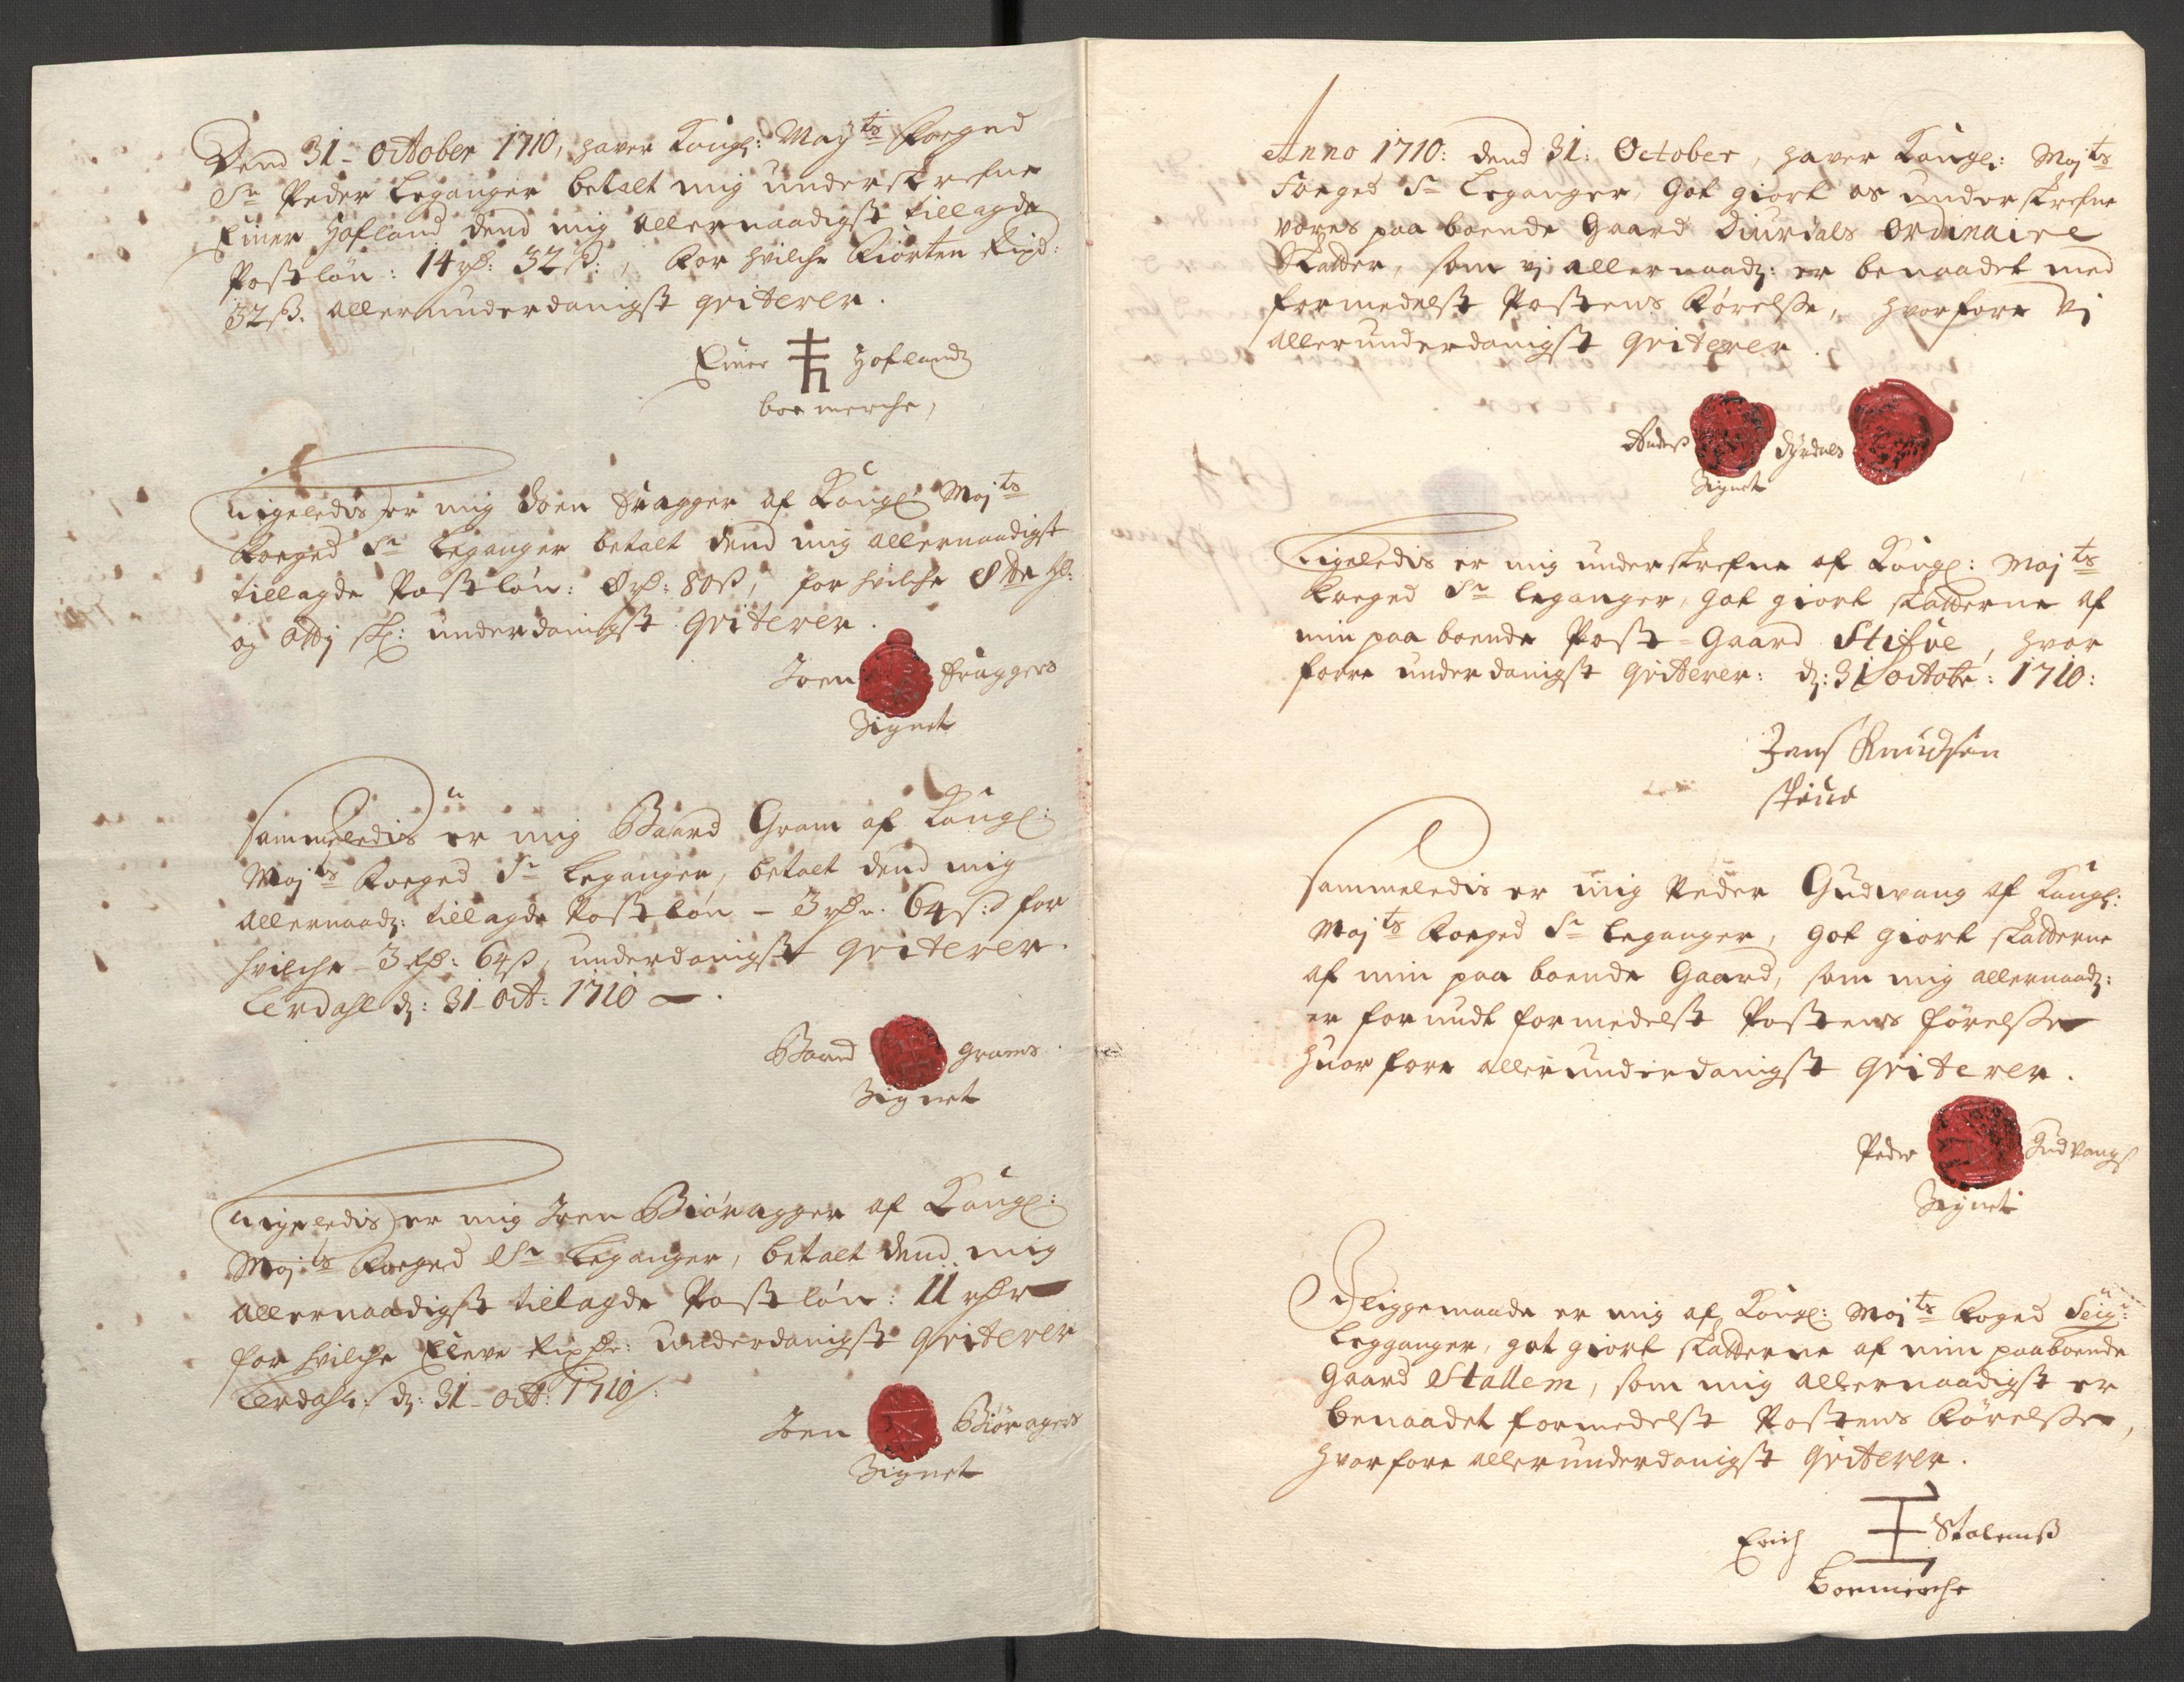 Dend 31- October 1710, haver Kongl: Mayts Foeged
Sr Peder Leganger betalt mig underskrefne
Einer Hofland dend mig allernaadigst tillagde
Postløn: 14 rd: 32 ß:, for hvilche Fiorten Rixd:
32 ß. allerunderdanigst qviterer.
Einer Hoflands
boe merche,
Ligeledis er mig Joen Fragger af Kongl: Majts
Foeged Sr Leganger betalt dend mig allernaadigst
tillagde Postløn: 8 rd: 80 ß, for hvilche
og otty sk: underdanigst qviterer.
Joen Fraggers
Signet
Sammeledis er mig Baard Gram af Kongl:
Majts Foeged Sr Leganger, betalt dend mig
allernaad: tillagde Postløn - 3 rdr. 64 s: for
hvilche - 3 rd: 64 ß, underdanigst qviterer.
Lerdahl d: 31- oct: 1710
Baard Grams
Signet
Ligeledis er mig Joen Biøragger af Kongl:
Majts Foeged Sr Leganger, betalt dend mig
allernaadigst tillagde Postløn: 11 rdr
for hvilche Eleve Rixdr: underdanigst qviterer
Lerdahl: d: 31- oct: 1710
Joen Biøragers
Signet
Anno 1710: dend 31: October, haver Kongl: Majts
Foeget Sr Leganger, Got giort os underskrefne
vores paa boende Gaard Diurdals Ordinaire
Skatter, som vj allernaad: er benaadet med
formedelst Postens Førelse, hvorfore vj
allerunderdanigst qviterer.
Anders Dyrdals
Signet
Ligeledis er mig underskrefne af Kongl: Majts
Foeged Sr Leganger, got giort skatterne af
min paa boende Post-Gaard Stifue, hvor
fore underdanigst qviterer: d: 31 octobr: 1710:
Jens Knudsen
Sammeledis er mig Peder Gudwang af Kongl:
Majts Foeged Sr Leganger, got giort skatterne
af min paa boende Gaard, som mig allernaad:
er forundt formedelst Postens førelse
huorfore allerunderdanigst qviterer.
Peder Gudvangs
Signet
Ligemaade er mig af Kongl: Majts Foged Seigr:
Legganger, got giort skatterne af min paaboende
Gaard Stallem, som mig allernaadigst er
benaadet formedelst Postens Førelse,
hvorfore allerunderdanigst qviterer.
Erich Stalemß
Boemerche